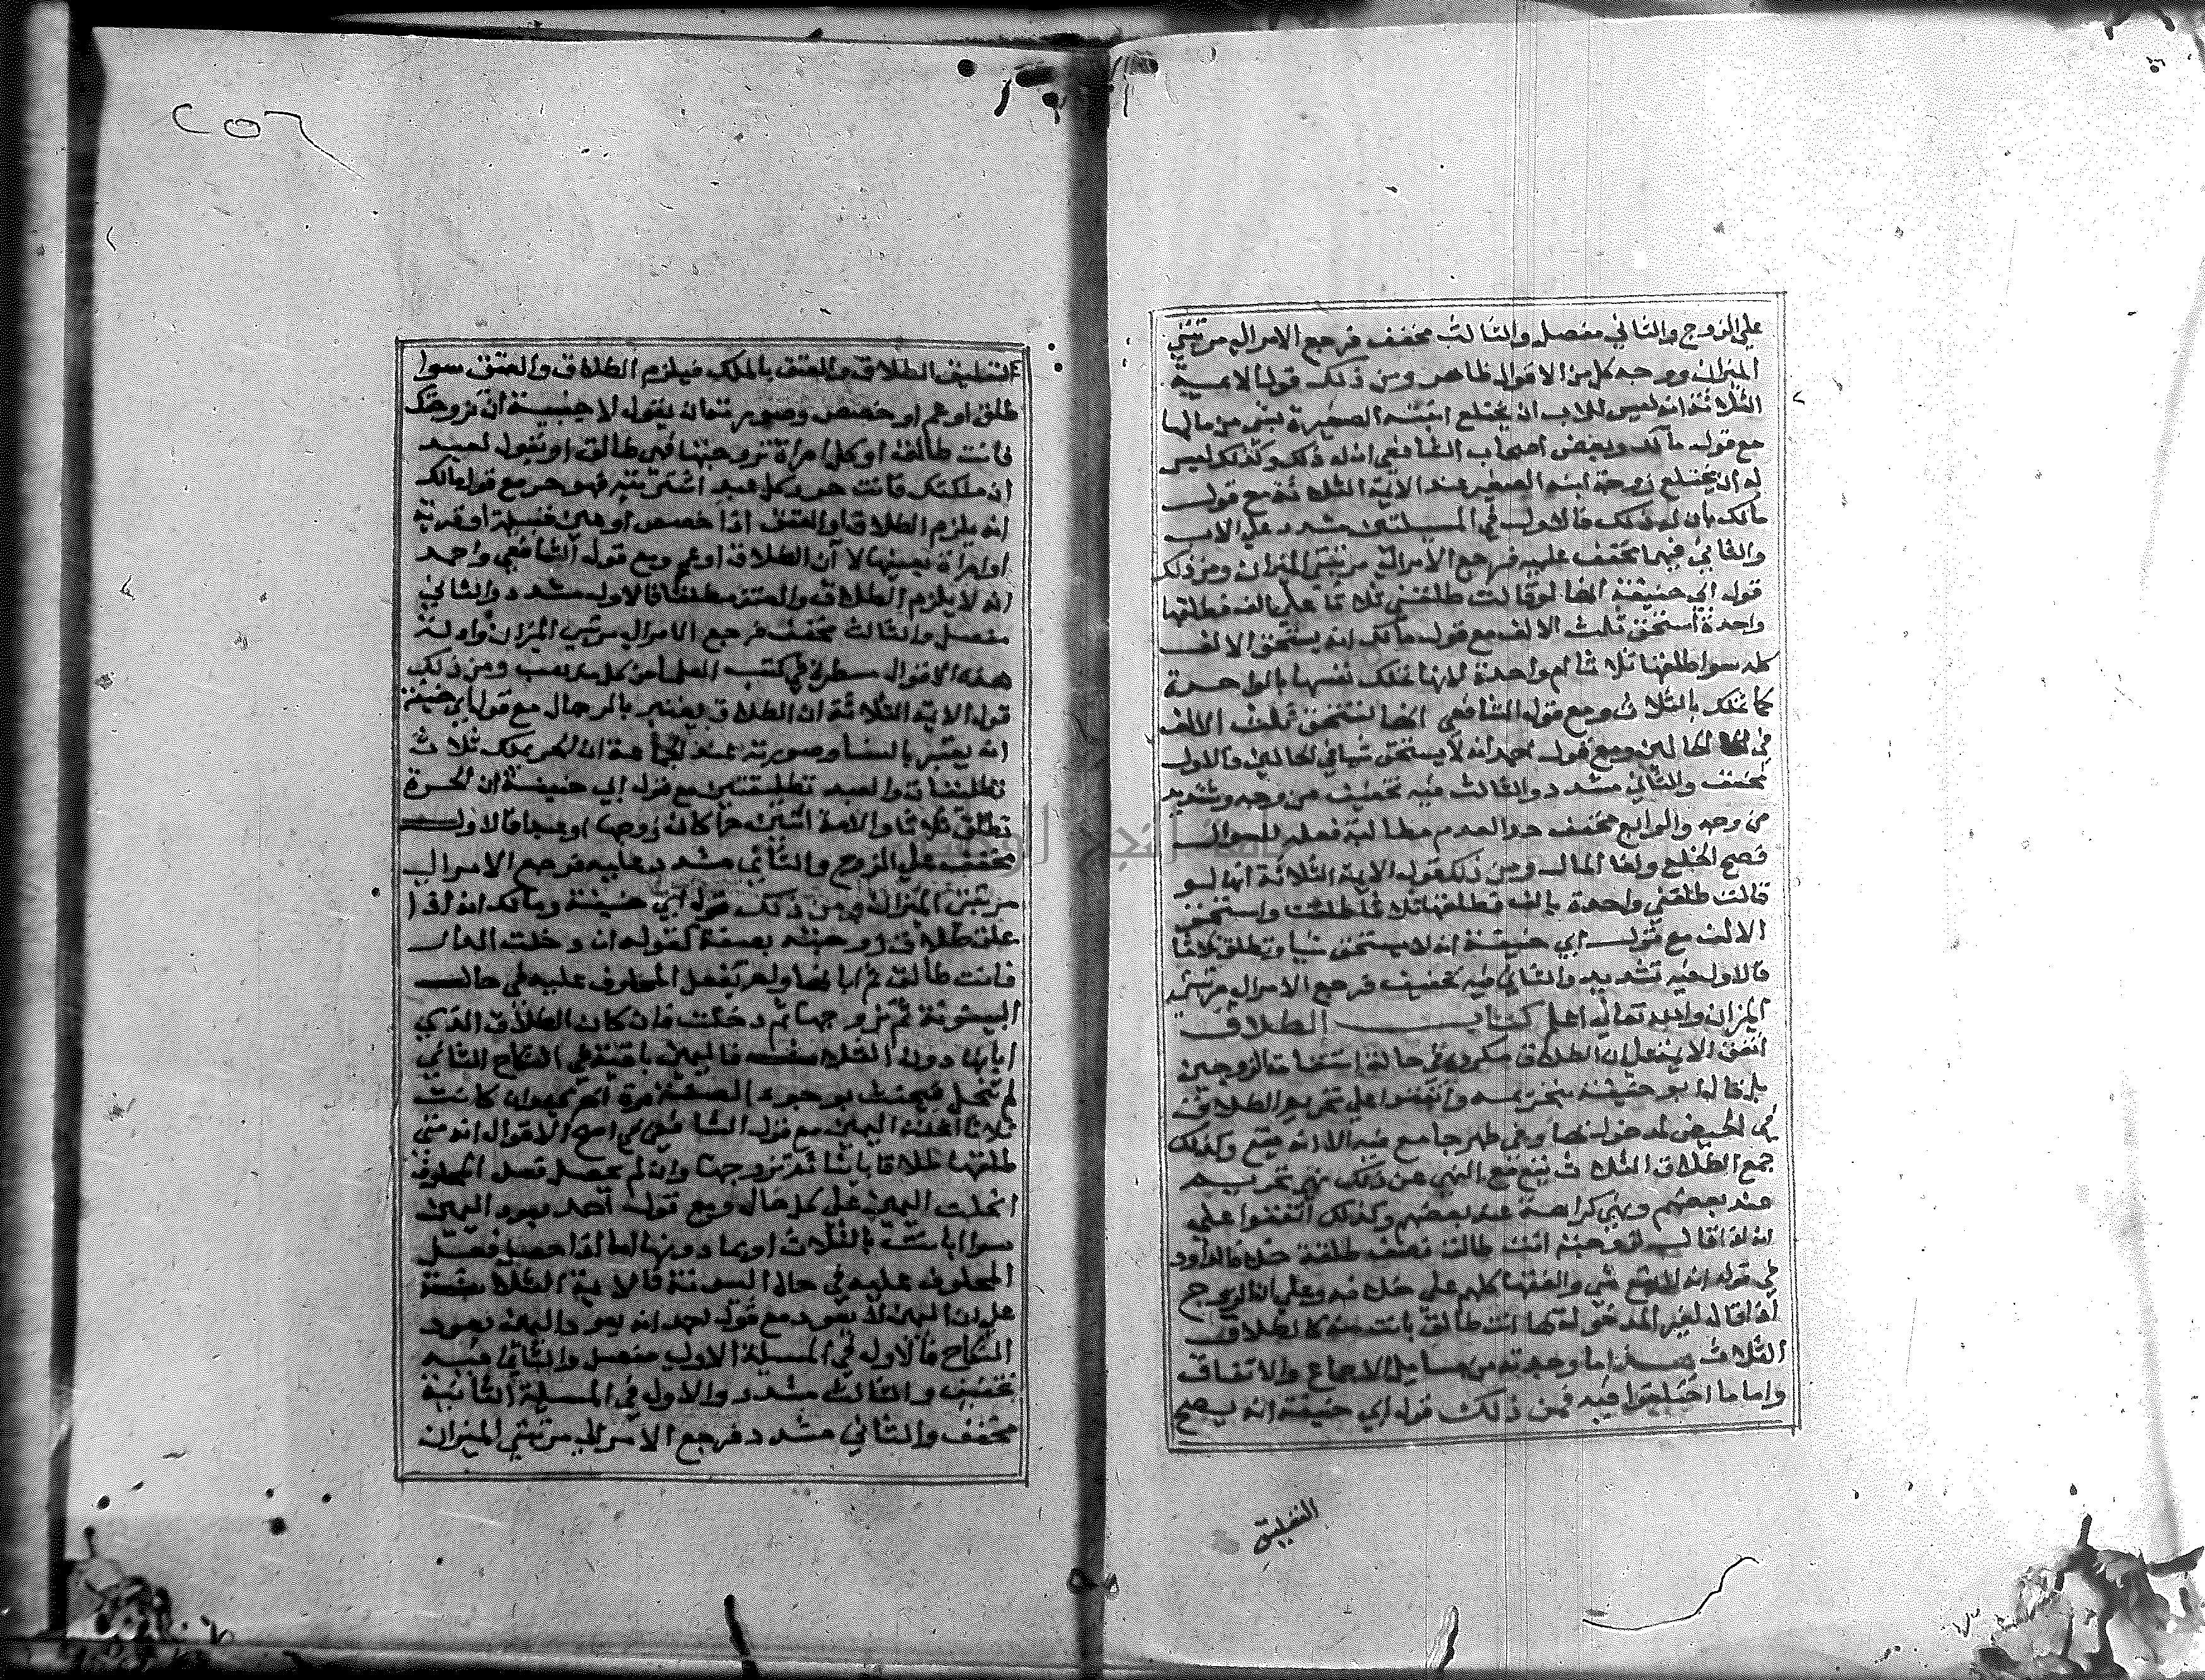 على الزوج والثاني مفصل والثالث مخفف فرجع الامر الي مرتبتي
الميزان ووجه كل من الاقوال ظاهر ومن ذلك قول الايمة
الثلاثة انه ليس للاب ان يختلع ابنته الصغيرة بشي من مالها
مع قول مالك وبعض اصحاب الشافعي ان له ذلك وكذلك ليس
له ان يختلع زوجة ابنه الصغير عند الايمة الثلاثة مع قول
مالك بان له ذلك فالاول في المسيلتين مشدد علي الاب
والثاني فيهما مخفف عليه فرجع الامر الي مرتبتي الميزان ومن ذلك
قول ابي حنيفة انها لو قالت طلقني ثلاثا علي الف فطلقها
واحدة استحق ثلث الالف مع قول مالك انه يستحق الالف
كله سوا طلقها ثلاثا ام واحدة لانها تملك نفسها بالواحدة
كما تملك بالثلاث ومع قول الشافعي انه يستحق ثلث الالف
في الحالين ومع قول احمد انه لا يستحق شيا في الحالين فالاول
مخفف والثاني مشدد والثالث فيه تخفيف من وجه وتشديد
من وجه والرابع مخفف جدا لعدم مطابقة فعله للسوال
فصح الخلع ولغا المال ومن ذلك قول الايمة الثلاثة انها لو
قالت طلقني واحدة بالف فطلقها ثلاثا طلقت واستحق
الالف مع قول ابي حنيفة انه لا يستحق شيا وتطلق ثلاثا
فالاول فيه تشديد والثاني فيه تخفيف فرجع الامر الي مرتبتي
الميزان والله تعالي اعلم كتاب الطلاق
اتفق الايمة علي ان الطلاق مكروه في حالة استقامة الزوجين
بل قال ابو حنيفة بتحريمه واتفقوا علي تحريم الطلاق
في الحيض لمدخول بها وفي طهر جامع فيه الا انه يقع وكذلك
جمع الطلاق الثلاث يقع مع النهي عن ذلك نهي تحريم
عند بعضهم ونهي كراهة عند بعضهم وكذلك اتفقوا علي
انه اذا قال لزوجته انت طالق نصف طلقة خلافا لداود
في قوله انه لا يقع شي والفقها كلهم علي خلافه وعلي ان الزوج
اذا قال لغير المدخول بها انت طالق بانت منه كالطلاق
الثلاث هذا ما وجدته من مسايل الاجماع والاتفاق
واما ما اختلفوا فيه فمن ذلك قول ابي حنيفة انه يصح
التعليق
٢٥٦
التعليق الطلاق والعتق بالملك فيلزم الطلاق والعتق سوا
طلق او عم او خصص وصورته ان يقول لاجنبية ان تزوجتك
فانت طالق او كل امراة تزوجتها فهي طالق او يقول لعبد
ان ملكتك فانت حر وكل عبد اشتريته فهو حر مع قول مالك
انه يلزم الطلاق والعتق اذا خصص او عين قبيلة او قرية
او امراة بعينها لا ان اطلق او عم ومع قول الشافعي واحمد
انه لا يلزم الطلاق والعتق مطلقا فالاول مشدد والثاني
مفصل والثالث مخفف فرجع الامر الي مرتبتي الميزان وادلة
هذه الاقوال مسطرة في كتب العلما من كل مذهب ومن ذلك
قول الايمة الثلاثة ان الطلاق يعتبر بالرجال مع قول ابي حنيفة
انه يعتبر بالنسا وصورته عند الجماعة ان الحر يملك ثلاث
تطليقات والعبد تطليقتين مع قول ابي حنيفة ان الحرة
تطلق ثلاثا والامة اثنين حرا كان زوجها او عبدا فالاول
مخفف علي الزوج والثاني مشدد عليه فرجع الامر الي
مرتبتي الميزان ومن ذلك قول ابي حنيفة ومالك انه اذا
علق طلاق زوجته بصفة كقوله ان دخلت الدار
فانت طالق ثم ابانها ولم يفعل المحلوف عليه في حال
البينونة ثم تزوجها ثم دخلت فان كان الطلاق الذي
ابانها دون الثلاث فاليمين باقية في النكاح الثاني
لم تنحل فيحنث بوجود الصفة مرة اخري وان كانت
ثلاثا انحلت اليمين مع قول الشافعي في اصح الاقوال انه متي
طلقها طلاقا باينا ثم تزوجها وان لم يحصل فعل المحلوف
انحلت اليمين علي كل حال ومع قول احمد بعود اليمين
سوا ابانت بالثلاث او بما دونها اما اذا حصل فعل
المحلوف عليه في حال البينونة فالايمة الثلاثة
علي ان اليمين لا تعود مع قول احمد انه يعود اليمين بعود
النكاح فالاول في المسيلة الاولي مفصل والثاني فيه
تخفيف والثالث مشدد والاول في المسيلة الثانية
مخفف والثاني مشدد فرجع الامر الي مرتبتي الميزان